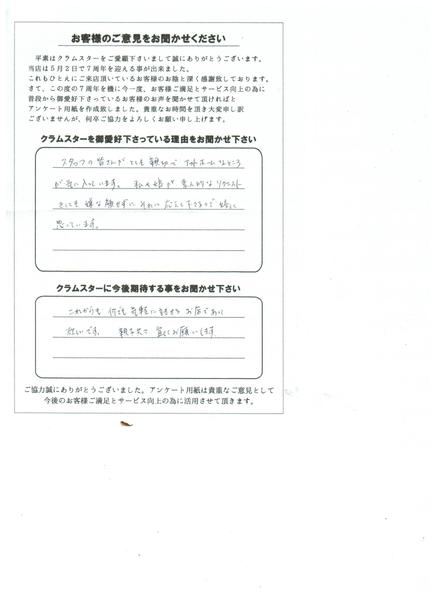 お客様のご意見をお聞かせください
平素はクラムスターをご愛顧下さいまして誠にありがとうございます。
当店は5月2日で7周年を迎える事が出来ました。
これもひとえにご来店頂いているお客様のお陰と深く感謝致しております。
さて、この度の7周年を機に今一度、お客様ご満足とサービス向上の為に
普段から御愛好下さっているお客様のお声を聞かせて頂ければと
アンケート用紙を作成致しました。貴重なお時間を頂き大変申し訳
ございませんが、何卒ご協力をよろしくお願い申し上げます。
クラムスターを御愛好下さっている理由をお聞かせ下さい
スタッフの皆さんがとても親切で アットホームなところ
が気に入っています。 私や娘が、素人的なリクエスト
をしても 嫌な顔せずに それに 応えて下さるので 嬉しく
思っています。
クラムスターに今後期待する事をお聞かせ下さい
これからも 何でも 気軽に 話せる お店であって
欲しいです。 親子共々 宜しくお願いします。
ご協力誠にありがとうございました。アンケート用紙は貴重なご意見として
今後のお客様ご満足とサービス向上の為に活用させて頂きます。